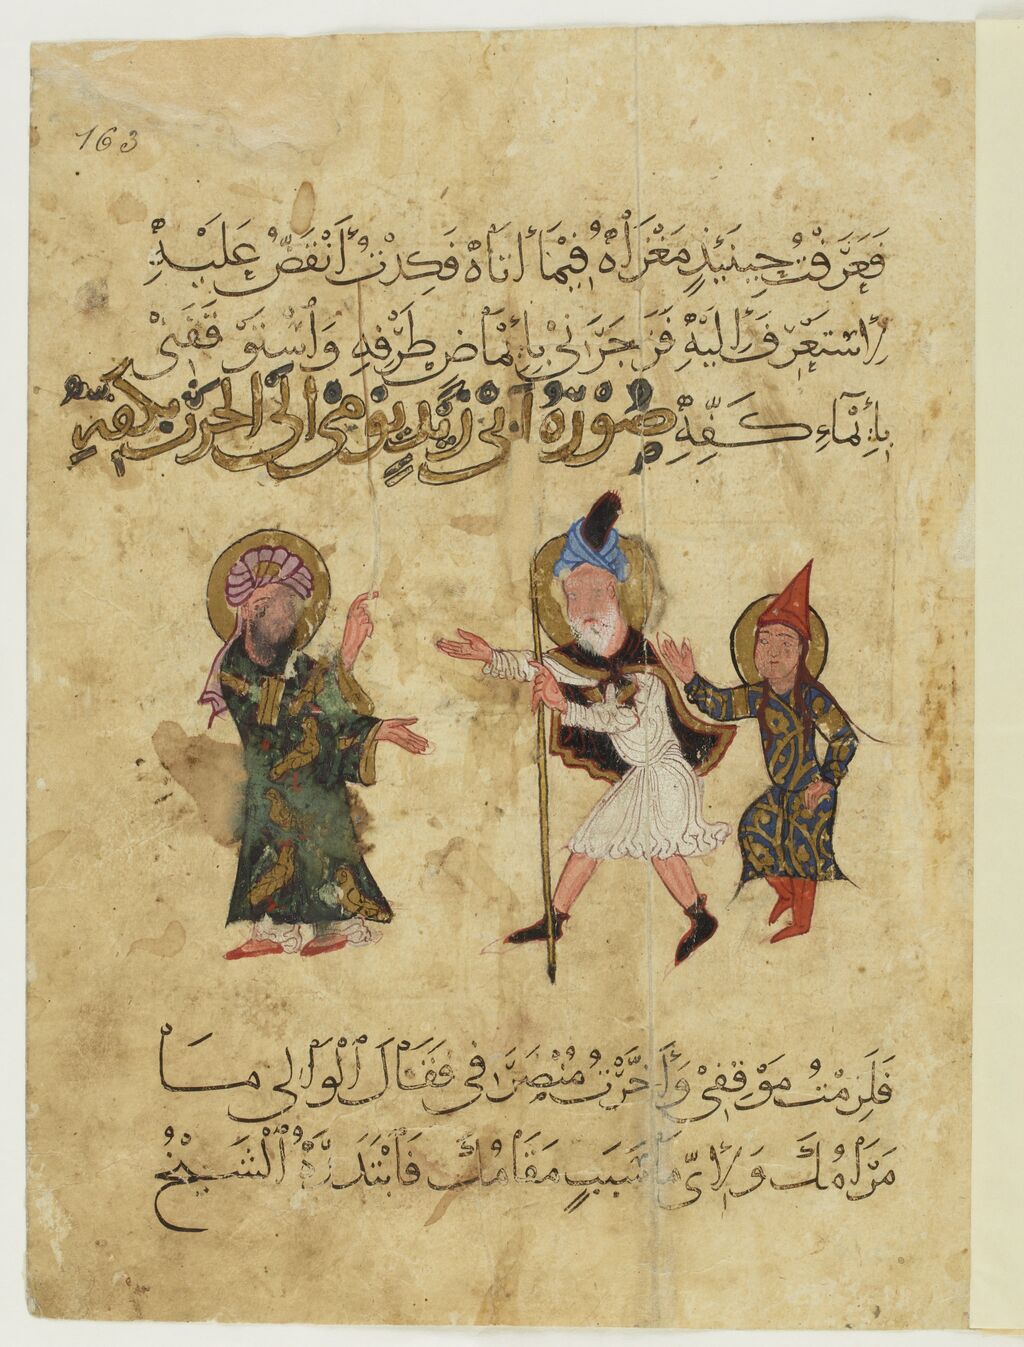 163
فَعَرَفْتُ حِينَئِذٍ مَغْزَاهُ فِيْمَا أَتَاهُ فَكِدْتُ أَنْقَضُّ عَلَيْهِ
لِأَسْتَعْرِفَ إِلَيْهِ فَزَجَرَنِيْ بِإِيْمَاضِ طَرْفِهِ وَاسْتَوْقَفَنِيْ
بِإِيْمَاءِ كَفِّهِ صُوْرَةُ أَبِيْ زَيْدٍ يُوْمِيْ إِلَى الحَرثِ بِكَفِّهِ
فَلَزِمْتُ مَوْقِفِيْ وَأَخَّرْتُ مُنْصَرَفِيْ فَقَالَ الْوَالِي مَا
مَرَامُكَ وَلِأَيِّ سَبَبٍ مَقَامُكَ فَابْتَدَرَهُ الْشَيْخُ